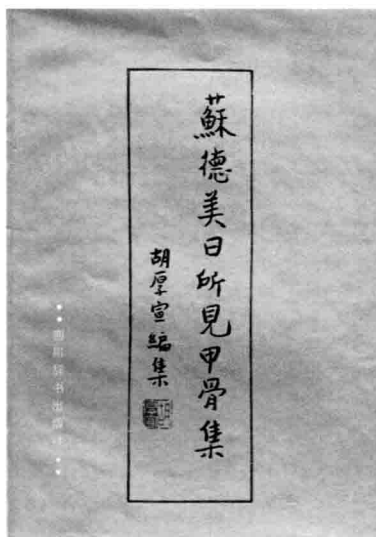 蘇德美日所見甲骨集
胡厚宣編集
四川辞书出版社